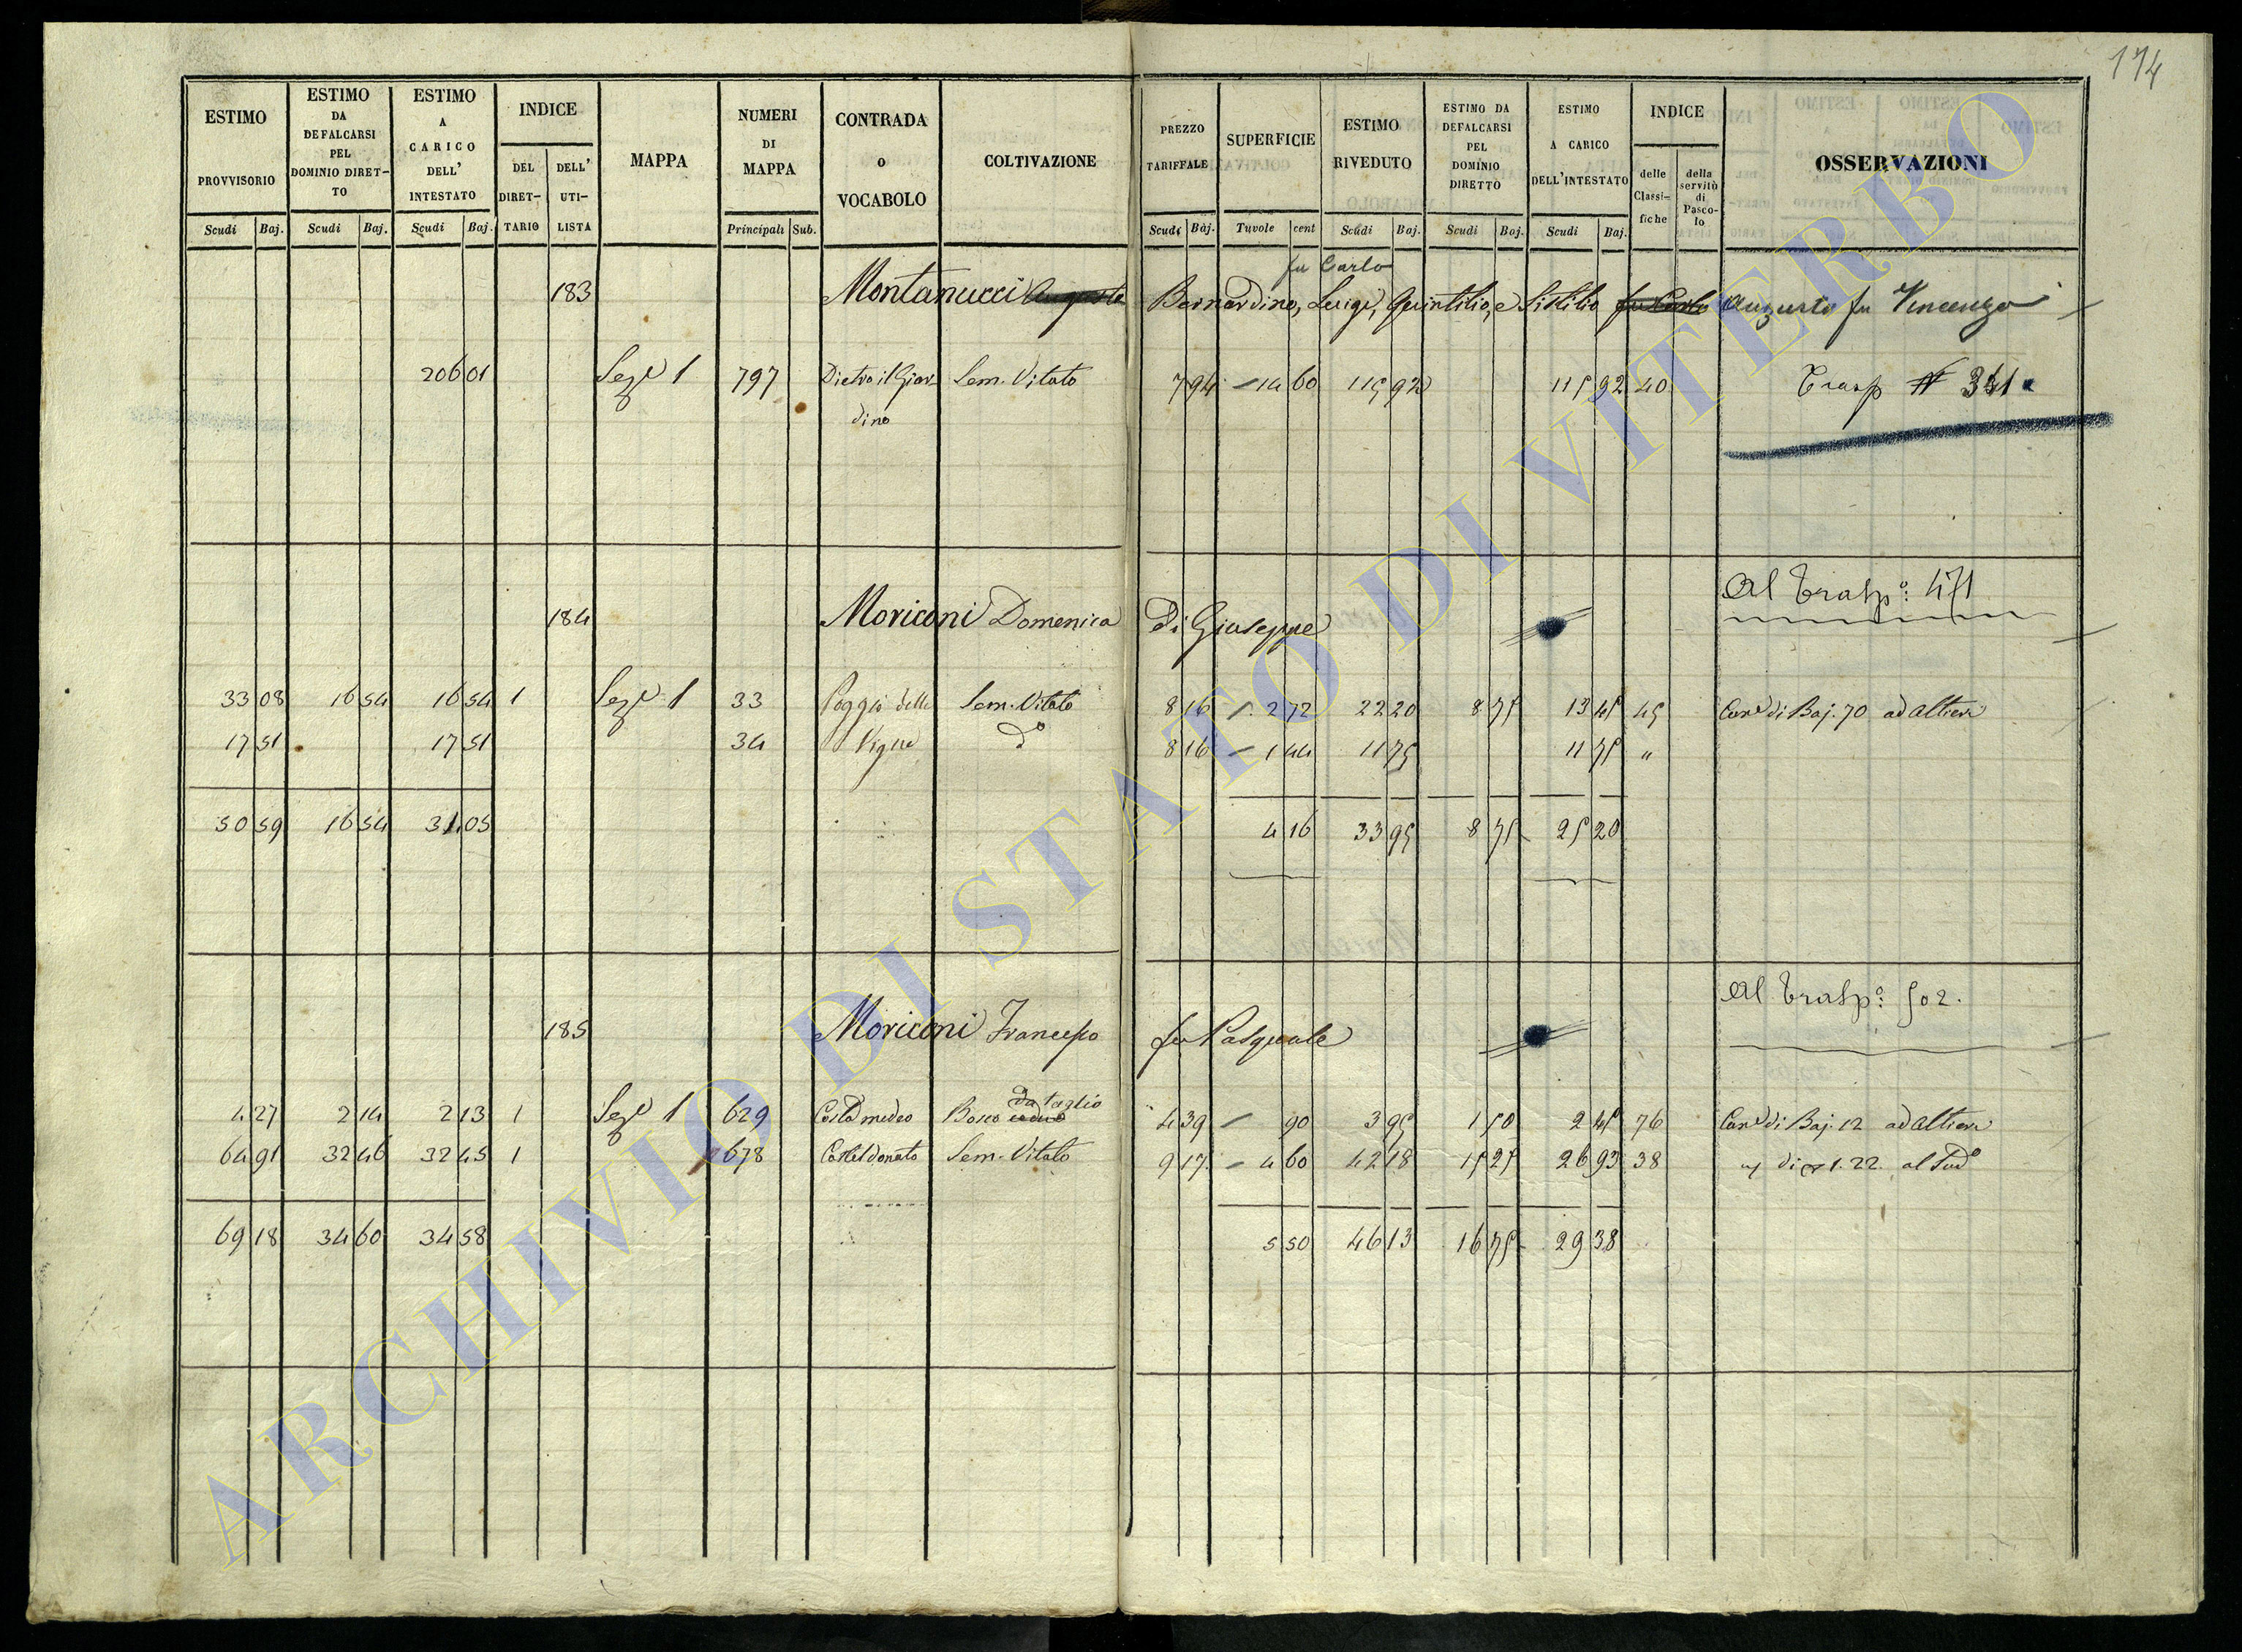 174
ESTIMO PROVVISORIO
ESTIMO DA DEFALCARSI PEL DOMINIO DIRET-TO
ESTIMO A CARICO DELL' INTESTATO
INDICE
DEL DIRET-TARIO
DELL' UTI-LISTA
MAPPA
NUMERI DI MAPPA
CONTRADA o VOCABOLO
COLTIVAZIONE
PREZZO TARIFFALE
SUPERFICIE
ESTIMO RIVEDUTO
ESTIMO DA DEFALCARSI PEL DOMINIO DIRETTO
ESTIMO A CARICO DELL'INTESTATO
INDICE
delle Classi-fiche
della servitù di Pasco-lo
OSSERVAZIONI
Scudi Baj. Scudi Baj. Scudi Baj. Principali Sub. Scudi Baj. Tavole cent Scudi Baj. Scudi Baj. Scudi Baj.
fu Carlo
183 Montanucci Augusto Bernardino, Luigi, Quintilio, e Sistilio fu Carlo Augusto fu Vincenzo
206 01 Sez.e 1 797 Dietro il Giar- Sem. Vitato 7 94 — 14 60 115 92 115 92 40 Trasp N 341
dino
Al Trasp.o: 471
184 Moriconi Domenica di Giuseppe
33 08 16 54 16 54 1 Sez.e 1 33 Poggio delle Sem. Vitato 8 16 2 72 22 20 8 75 13 45 45 Can.e di Baj. 70 ad Altieri
17 51 17 51 34 Vigne d.o 8 16 — 1 44 11 75 11 75 "
50 59 16 54 34 05 4 16 33 95 8 75 25 20
Al Trasp.o: 502.
185 Moriconi Francesco fu Pasquale
da taglio
4 27 2 14 2 13 1 Sez.e 1 629 Costa medeo Bosco ceduo 4 39 — 90 3 95 1 50 2 45 76 Can.e di Baj. 12 ad Altieri
64 91 32 46 32 45 1 678 Castel donato Sem. Vitato 9 17 — 4 60 42 18 15 25 26 93 38 di 1.22. al Sud.o
69 18 34 60 34 58 5 50 46 13 16 75 29 38
ARCHIVIO DI STATO DI VITERBO